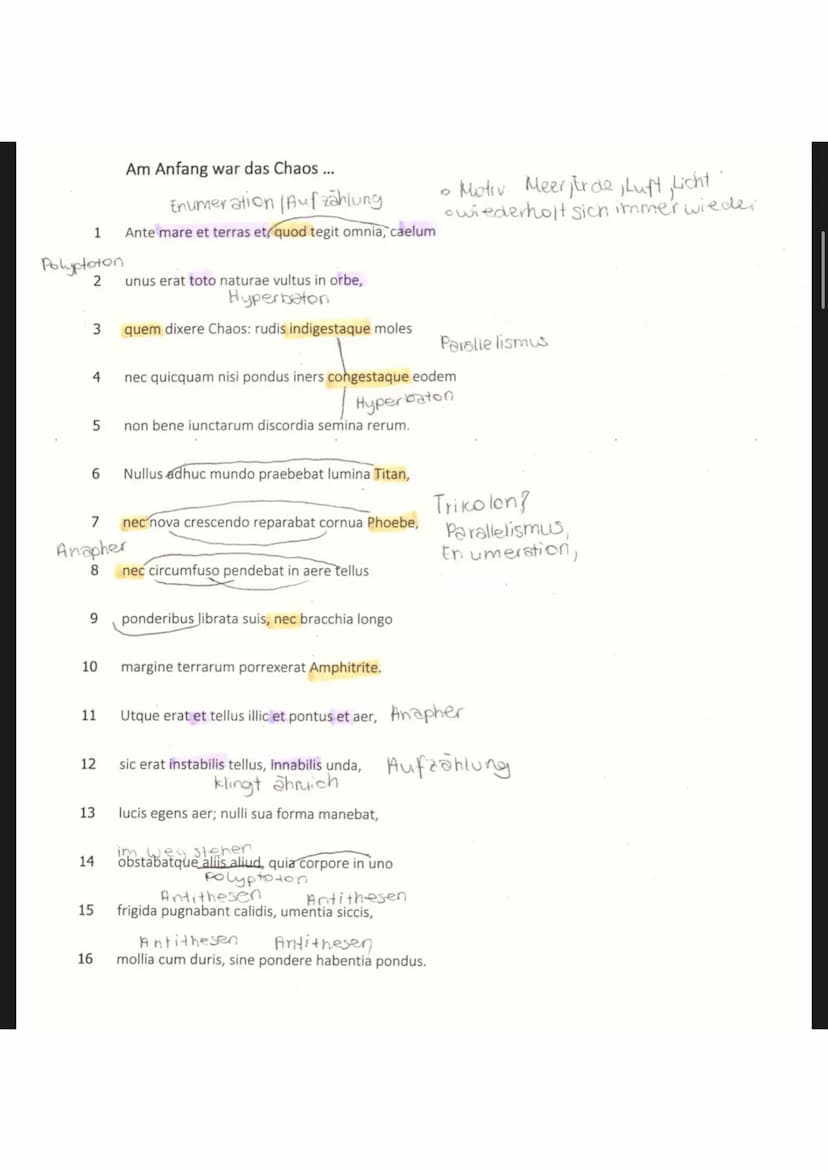 Am Anfang war das Chaos ...
Enumeration / Aufzählung
o Motiv Meer, Erde, Luft, Licht
o wiederholt sich immer wieder
1 Ante mare et terras et, quod tegit omnia, caelum
Polyptoton
2 unus erat toto naturae vultus in orbe,
Hyperbaton
3 quem dixere Chaos: rudis indigestaque moles
Parallelismus
4 nec quicquam nisi pondus iners congestaque eodem
Hyperbaton
5 non bene iunctarum discordia semina rerum.
6 Nullus adhuc mundo praebebat lumina Titan,
Trikolon?
7 nec nova crescendo reparabat cornua Phoebe,
Parallelismus,
Enumeration,
Anapher
8 nec circumfuso pendebat in aere tellus
9 ponderibus librata suis, nec bracchia longo
10 margine terrarum porrexerat Amphitrite.
11 Utque erat et tellus illic et pontus et aer, Anapher
12 sic erat instabilis tellus, innabilis unda, Aufzählung
klingt ähnlich
13 lucis egens aer; nulli sua forma manebat,
im weg stehen
14 obstabatque aliis aliud, quia corpore in uno
Polyptoton
Antithesen Antithesen
15 frigida pugnabant calidis, umentia siccis,
Antithesen Antithesen
16 mollia cum duris, sine pondere habentia pondus.